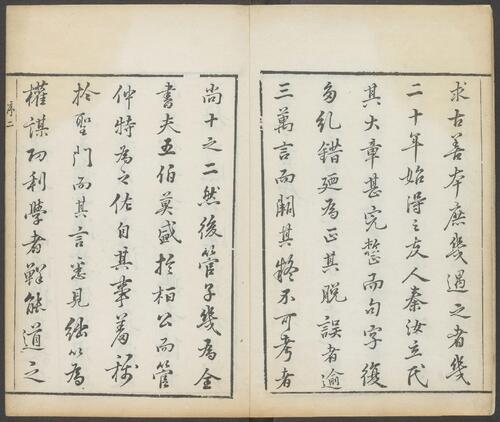 求古善本庶幾遇之者幾
二十年始得之友人秦汝立氏
其大章甚完整而句字復
多糺錯廼為正其脫誤者逾
三萬言而闕其疑不可考者
尚十之二然後管子幾為全
書夫五伯莫盛於桓公而管
仲特為之佐自其事羞稱
於聖門而其言悉見絀以為
權謀功利學者鮮能道之
序二